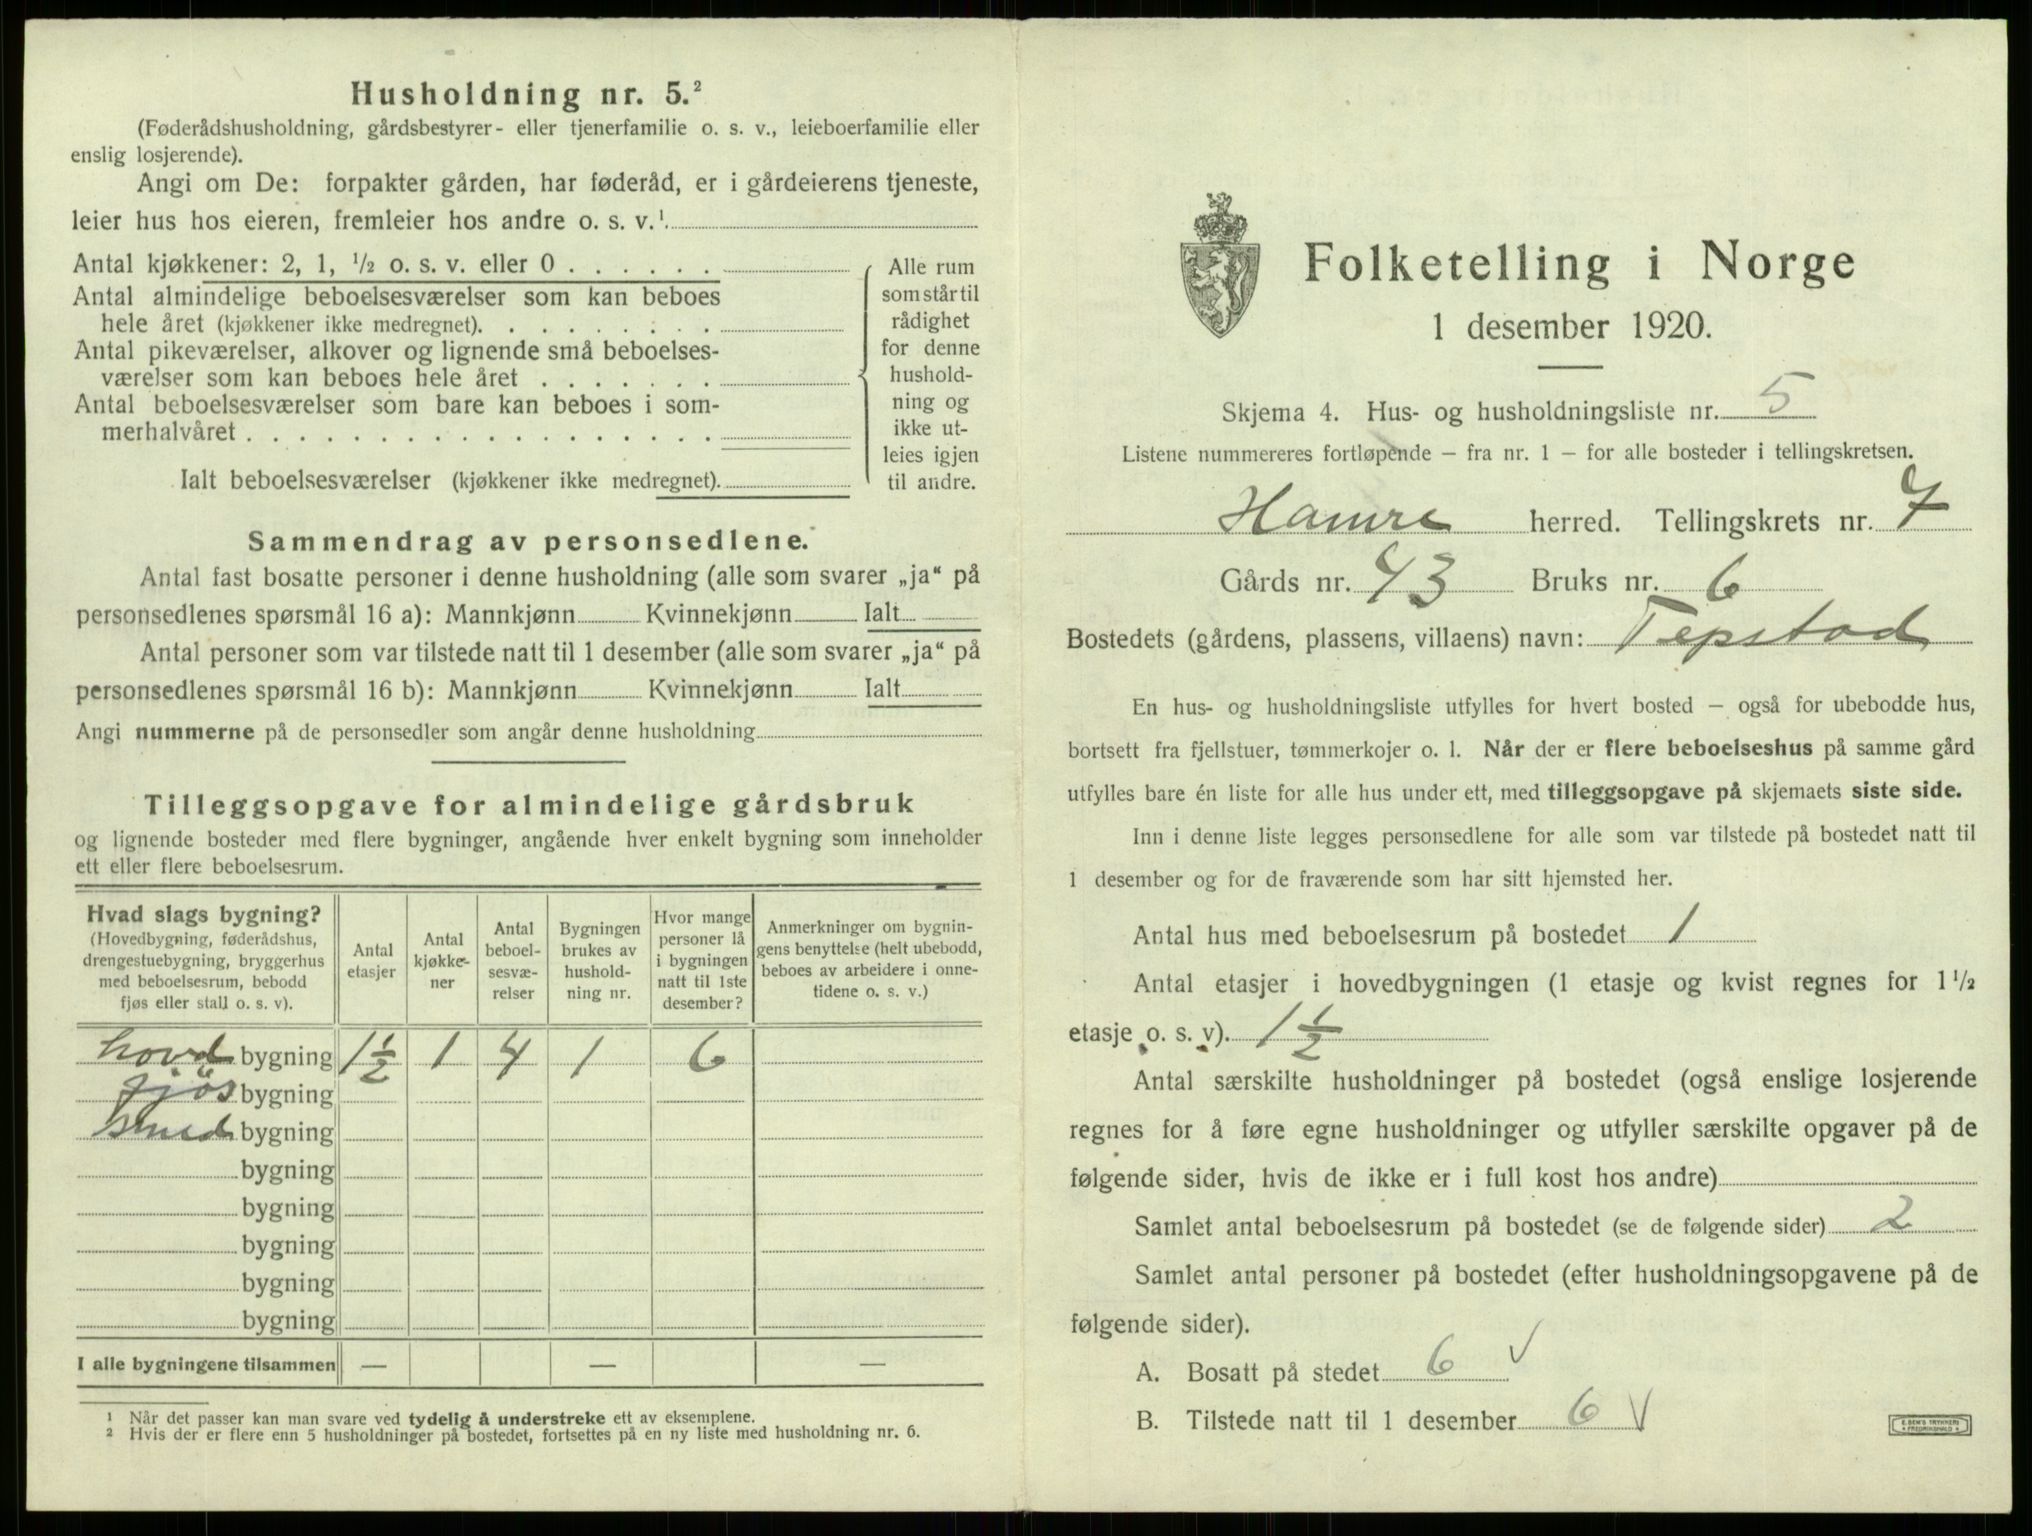 Husholdning nr. 5.²
(Føderådshusholdning, gårdsbestyrer- eller tjenerfamilie o. s. v., leieboerfamilie eller
enslig losjerende).
Angi om De: forpakter gården, har føderåd, er i gårdeierens tjeneste,
leier hus hos eieren, fremleier hos andre o. s. v.¹.
Antal kjøkkener: 2, 1, ½ o. s. v. eller 0 . . . . . .
Antal almindelige beboelsesværelser som kan beboes
hele året (kjøkkener ikke medregnet). . . . . . . . .
Antal pikeværelser, alkover og lignende små beboelses-
værelser som kan beboes hele året . . . . . . .
Antal beboelsesværelser som bare kan beboes i som-
merhalvåret . . . . . . . . . . . . . . . . . .
Ialt beboelsesværelser (kjøkkener ikke medregnet).
Alle rum
som står til
rådighet
for denne
hushold-
ning og
ikke ut-
leies igjen
til andre.
Sammendrag av personsedlene.
Antal fast bosatte personer i denne husholdning (alle som svarer „ja“ på
personsedlenes spørsmål 16 a): Mannkjønn Kvinnekjønn Ialt
Antal personer som var tilstede natt til 1 desember (alle som svarer „ja“ på
personsedlenes spørsmål 16 b): Mannkjønn Kvinnekjønn Ialt
Angi nummerne på de personsedler som angår denne husholdning
Tilleggsopgave for almindelige gårdsbruk
og lignende bosteder med flere bygninger, angående hver enkelt bygning som inneholder
ett eller flere beboelsesrum.
Hvad slags bygning?
(Hovedbygning, føderådshus,
drengestuebygning, bryggerhus
med beboelsesrum, bebodd
fjøs eller stall o. s. v).
Antal
etasjer
Antal
kjøkke-
ner
Antal
beboel-
sesvæ-
relser
Bygningen
brukes av
hushold-
ning nr.
Hvor mange
personer lå
i bygningen
natt til 1ste
desember?
Anmerkninger om bygnin-
gens benyttelse (helt ubebodd,
beboes av arbeidere i onne-
tidene o. s. v.)
hovd bygning 1½ 1 4 1 6
fjøs bygning
smed bygning
bygning
bygning
bygning
bygning
bygning
I alle bygningene tilsammen — — —
¹ Når det passer kan man svare ved tydelig å understreke ett av eksemplene.
² Hvis der er flere enn 5 husholdninger på bostedet, fortsettes på en ny liste med husholdning nr. 6.
Folketelling i Norge
1 desember 1920.
Skjema 4. Hus- og husholdningsliste nr. 5
Listene nummereres fortløpende — fra nr. 1 — for alle bosteder i tellingskretsen.
Hamre herred. Tellingskrets nr. 7
Gårds nr. 43 Bruks nr. 6
Bostedets (gårdens, plassens, villaens) navn: Tepstad
En hus- og husholdningsliste utfylles for hvert bosted — også for ubebodde hus,
bortsett fra fjellstuer, tømmerkojer o. l. Når der er flere beboelseshus på samme gård
utfylles bare én liste for alle hus under ett, med tilleggsopgave på skjemaets siste side.
Inn i denne liste legges personsedlene for alle som var tilstede på bostedet natt til
1 desember og for de fraværende som har sitt hjemsted her.
Antal hus med beboelsesrum på bostedet 1
Antal etasjer i hovedbygningen (1 etasje og kvist regnes for 1½
etasje o. s. v). 1½
Antal særskilte husholdninger på bostedet (også enslige losjerende
regnes for å føre egne husholdninger og utfyller særskilte opgaver på de
følgende sider, hvis de ikke er i full kost hos andre)
Samlet antal beboelsesrum på bostedet (se de følgende sider) 2
Samlet antal personer på bostedet (efter husholdningsopgavene på de
følgende sider).
A. Bosatt på stedet 6 √
B. Tilstede natt til 1 desember 6 √
E. SEM'S TRYKKERI
FREDRIKSHALD